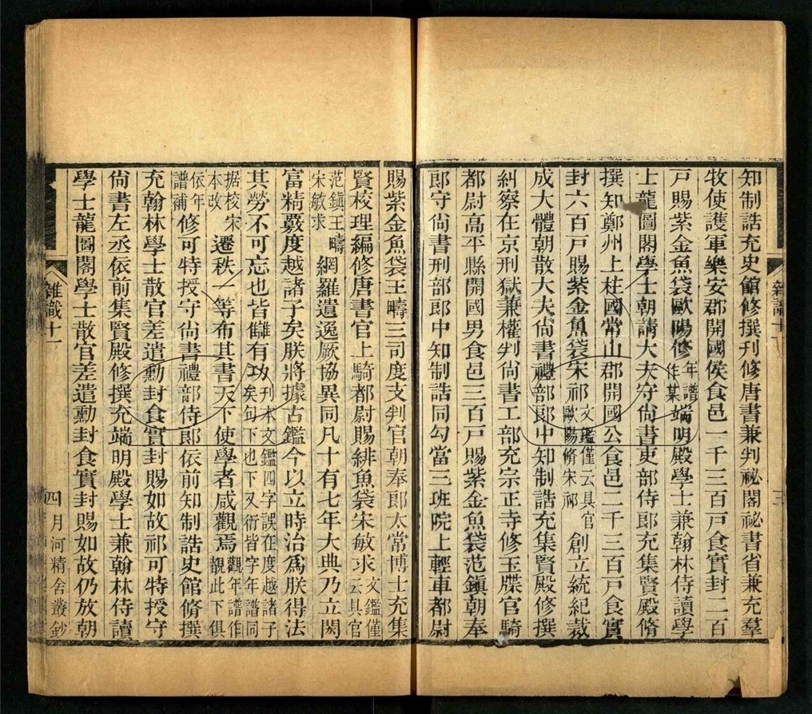 知制誥充史館修撰刊修唐書兼判祕閣祕書省兼充羣
牧使護軍樂安郡開國侯食邑一千三百戸食實封二百
戸賜紫金魚袋歐陽修年譜作某端明殿學士兼翰林侍讀學
士龍圖閣學士朝請大夫守尚書吏部侍郎充集賢殿修
撰知鄭州上柱國常山郡開國公食邑二千三百戸食實
封六百戸賜紫金魚袋宋祁文鑑僅云具官歐陽脩宋祁創立統紀裁
成大體朝散大夫尚書禮部郎中知制誥充集賢殿修撰
糾察在京刑獄兼權判尚書工部充宗正寺修玉牒官騎
都尉高平縣開國男食邑三百戸賜紫金魚袋范鎮朝奉
郎守尚書刑部郎中知制誥同勾當三班院上輕車都尉
賜紫金魚袋王疇三司度支判官朝奉郎太常博士充集
賢校理編修唐書官上騎都尉賜緋魚袋宋敏求文鑑僅云具官
范鎮王疇宋敏求網羅遺逸厥協異同凡十有七年大典乃立閎
富精覈度越諸子矣朕將據古鑑今以立時治爲朕得法
其勞不可忘也皆讎有功刋本文鑑四字誤在度越諸子矣句下也下又衍皆字年譜同
据校宋本改遷秩一等布其書天下使學者咸觀焉觀年譜作覩此下俱
依年譜補修可特授守尚書禮部侍郎依前知制誥史館脩撰
充翰林學士散官差遣勳封食實封賜如故祁可特授守
尚書左丞依前集賢殿修撰充端明殿學士兼翰林侍讀
學士龍圖閣學士散官差遣勳封食實封賜如故仍放朝
雜識十一
四
月河精舍叢鈔